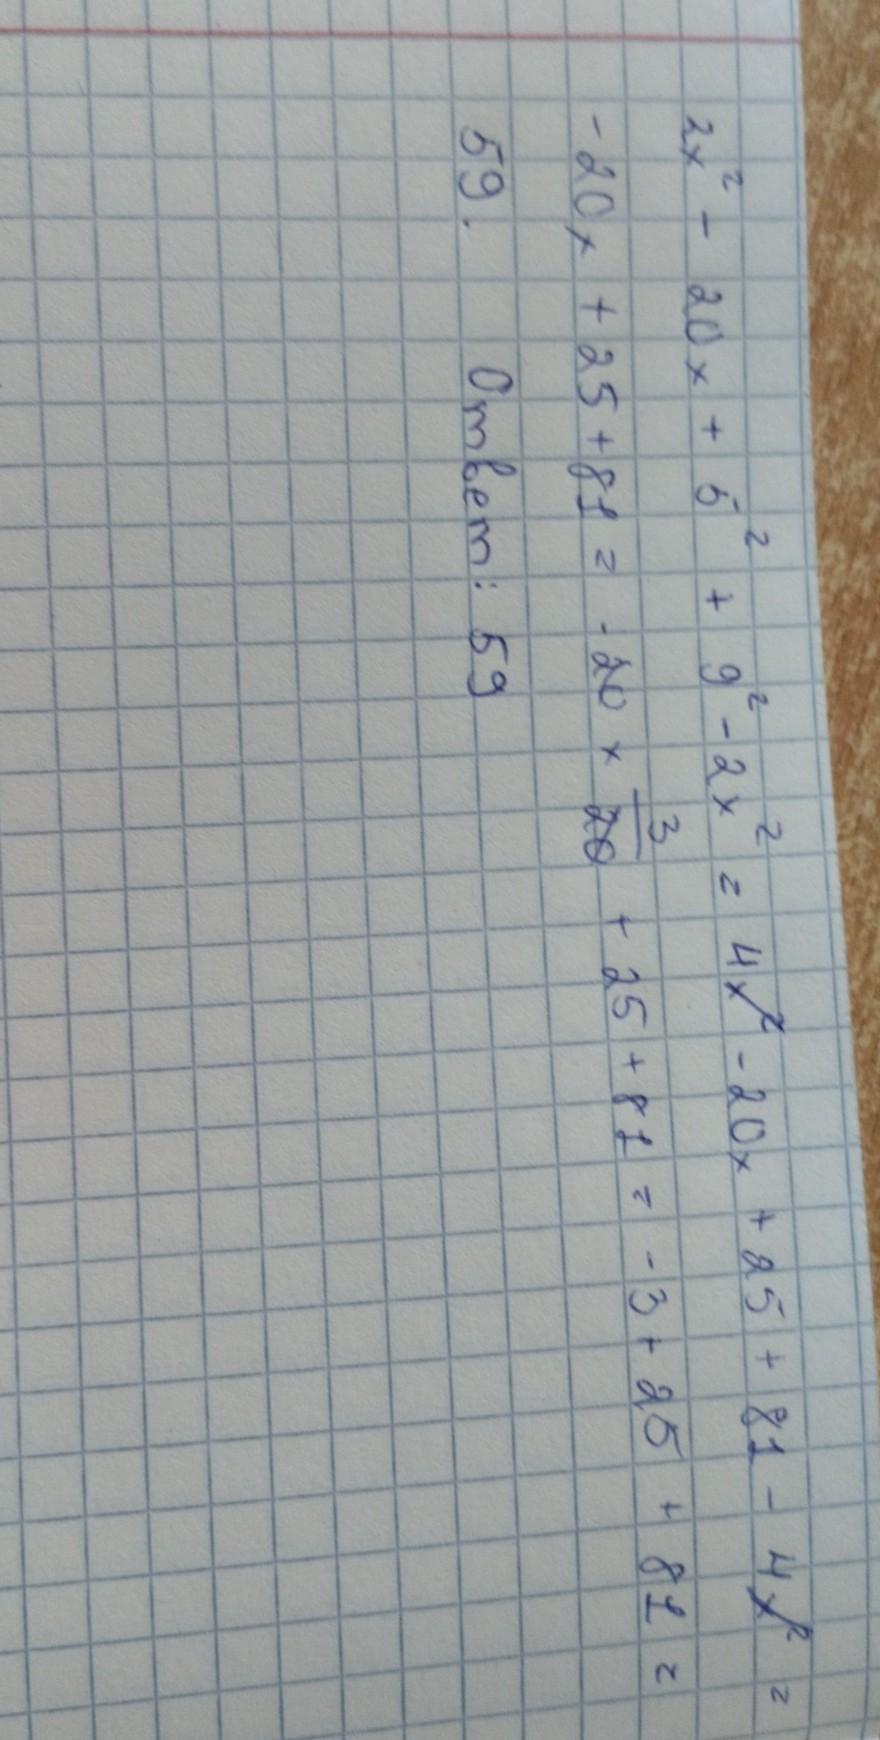 2x² - 20x + 5² + 9² - 2x² = 4x² - 20x + 25 + 81 - 4x² =
- 20x + 25 + 81 = - 20 × 3/20 + 25 + 81 = - 3 + 25 + 81 =
59. Ответ: 59